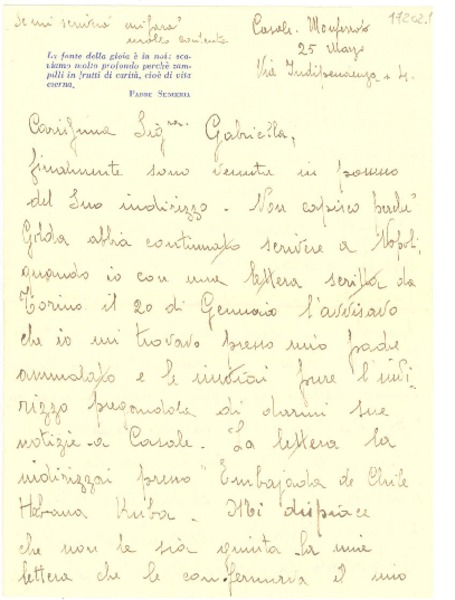 Se mi scriverà mi farà
molto contenta
17202.1
Casale Monferrato
25 Marzo
Via Indipendenza 4.
La fonte della gioia è in noi: sca-
viamo molto profondo perchè zam-
pilli in frutti di carità, cioè di vita
eterna.
Padre Semeria
Carissima Sig.ra Gabriella,
finalmente sono venuta in possesso
del Suo indirizzo. Non capisco perchè
Golda abbia continuato scrivere a Napoli
quando io con una lettera scritta da
Torino il 20 di Gennaio l'avvisavo
che io mi trovavo presso mio padre
ammalato e le inviai pure l'indi-
rizzo pregandola di darmi sue
notizie a Casale. La lettera la
indirizzai presso "Embajada de Chile
Habana Kuba. Mi dispiace
che non le sia giunta la mia
lettera che le confermava il mio